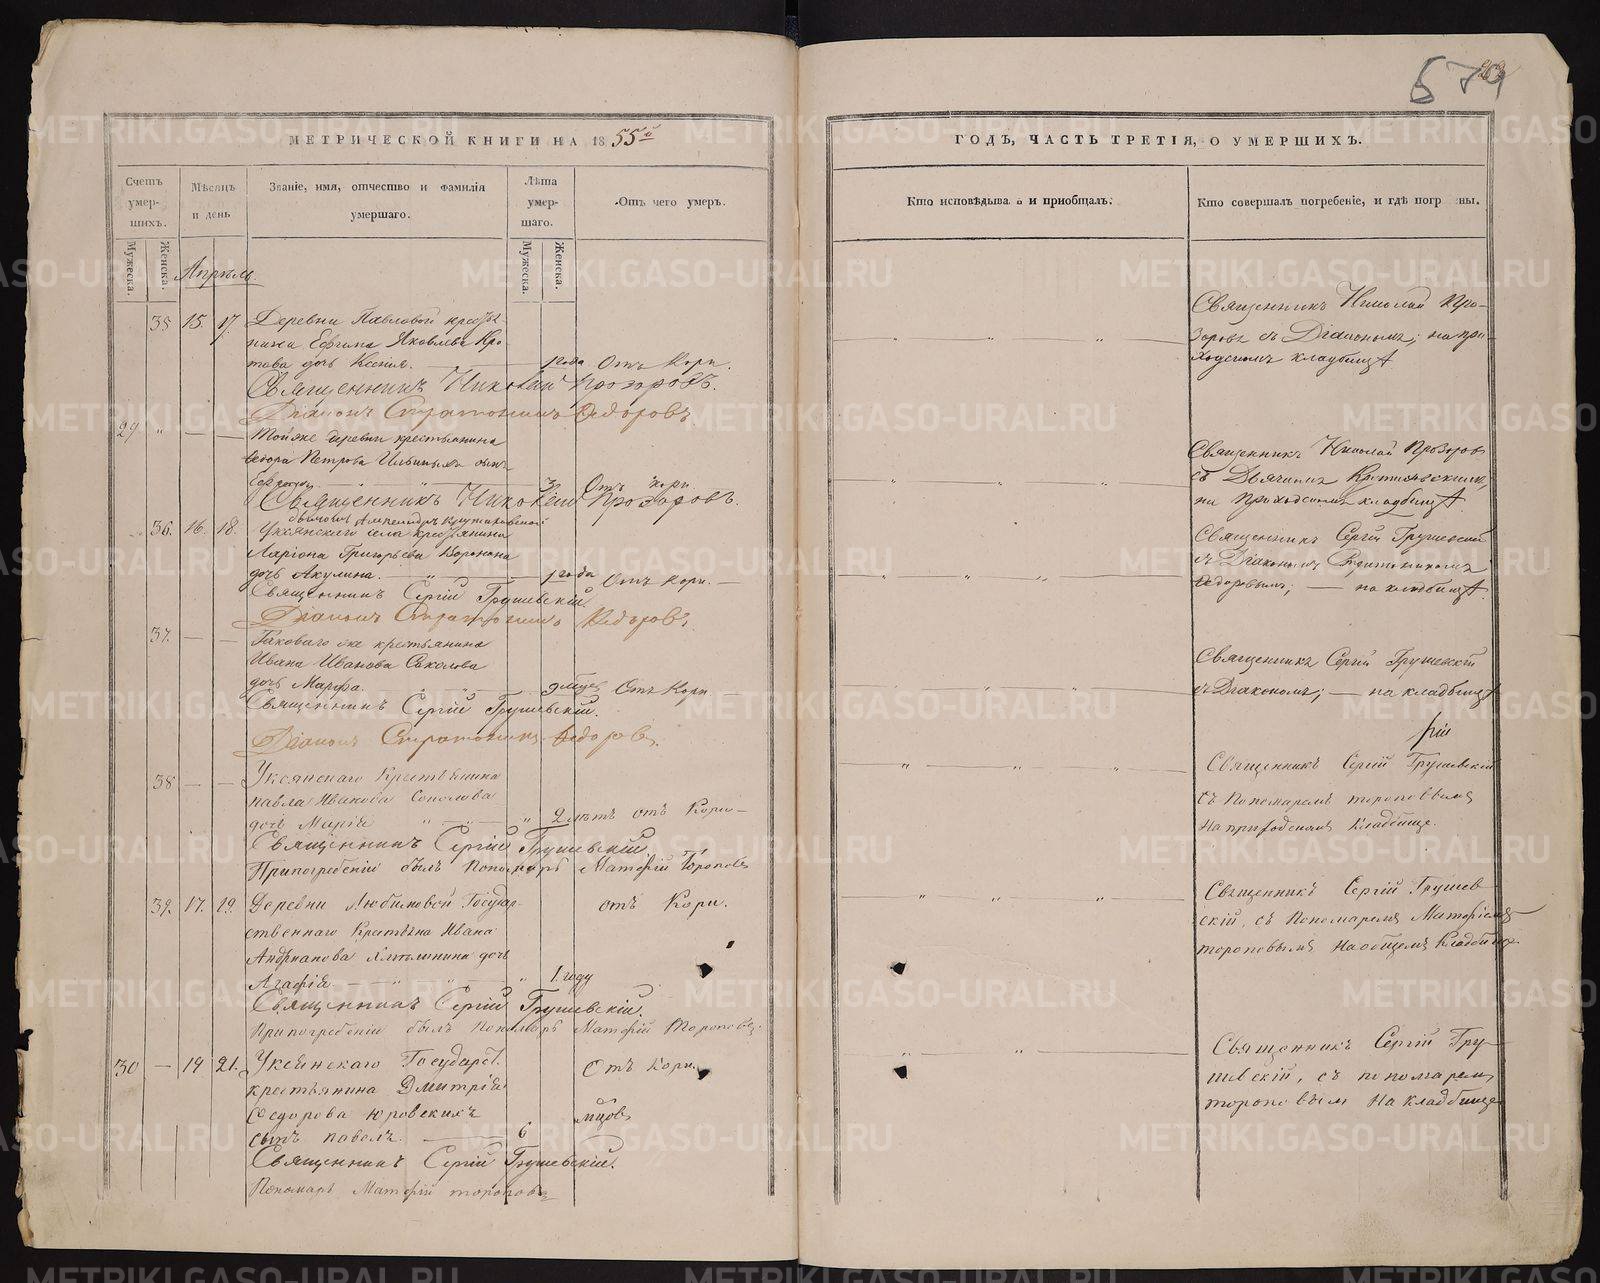 579
МЕТРИЧЕСКОЙ КНИГИ НА 1855й
ГОДЪ, ЧАСТЬ ТРЕТІЯ, О УМЕРШИХЪ.
Счетъ умерших.
Мужеска.
Женска.
Мѣсяцъ и день
Званіе, имя, отчество и фамилія умершаго.
Лѣта умершаго.
Мужеска.
Женска.
Отъ чего умеръ.
Кто исповѣдыва и приобщалъ.
Кто совершалъ погребеніе, и гдѣ погр ны.
Апрѣль
35 15. 17. Деревни Павловой кресть-
янина Ефима Яковлева Кро
това дочь Ксенія. 1 года Отъ Кори.
Священникъ Николай Прозоровъ.
Діаконъ Стратоникъ Федоровъ.
Священникъ Николай Про-
зоровъ съ Діакономъ; на при-
ходскомъ кладбищѣ
29 " — — Тойже деревни крестьянина
Федора Петрова сынъ
3 Отъ кори
Священникъ Николай Прозоровъ.
Священникъ Николай Прозоровъ
съ
на Приходскомъ кладбищѣ.
36. 16. 18. Уксянскаго села крестьянина
Ларіона Григорьева Воронина
дочь Акулина. 1 года Отъ Кори.
Священникъ Сергій Грушевскій.
Діаконъ Стратоникъ Федоровъ.
Священникъ Сергій Грушевскій
съ Діакономъ Стратоникомъ
Федоровымъ; — на кладбищѣ.
37. — — Таковаго же крестьянина
Ивана Иванова Соколова
дочь Марфа. Отъ Кори —
Священникъ Сергій Грушевскій.
Діаконъ Стратоникъ Федоровъ.
Священникъ Сергій Грушевскій
съ Діакономъ; — на кладбищѣ
38 — — Уксянскаго Крестьянина
павла Иванова Соколова
дочь Марія " " 2 лѣтъ отъ Кори —
Священникъ Сергій Грушевскій
Припогребеніи былъ Пономарь Матфій Тороповъ
Священникъ Сергій Грушевскій
съ Пономаремъ тороповымъ
На приходскомъ Кладбище.
39. 17. 19. Деревни Любимовой Государ-
ственнаго Крестьяна Ивана
Андрианова дочь
Агафія " 1 году отъ Кори.
Священникъ Сергій Грушевскій.
Припогребеніи былъ Пономарь Матфій Тороповъ.
Священникъ Сергій Грушев
скій, съ Пономаремъ Матфіемъ
тороповымъ На общемъ Кладбище.
30 — 19 21. Уксянскаго Государст.
крестьянина Дмитрія
Федорова Юровскихъ
сынъ павелъ. 6 мцовъ Отъ Кори.
Священникъ Сергій Грушевскій.
Пономарь Матфій тороповъ
Священникъ Сергій Гру-
шевскій, съ пономаремъ
тороповымъ На кладбище
METRIKI.GASO-URAL.RU